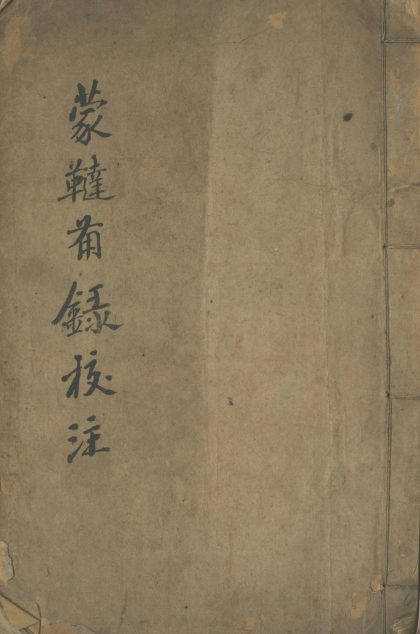 蒙韃備錄校注